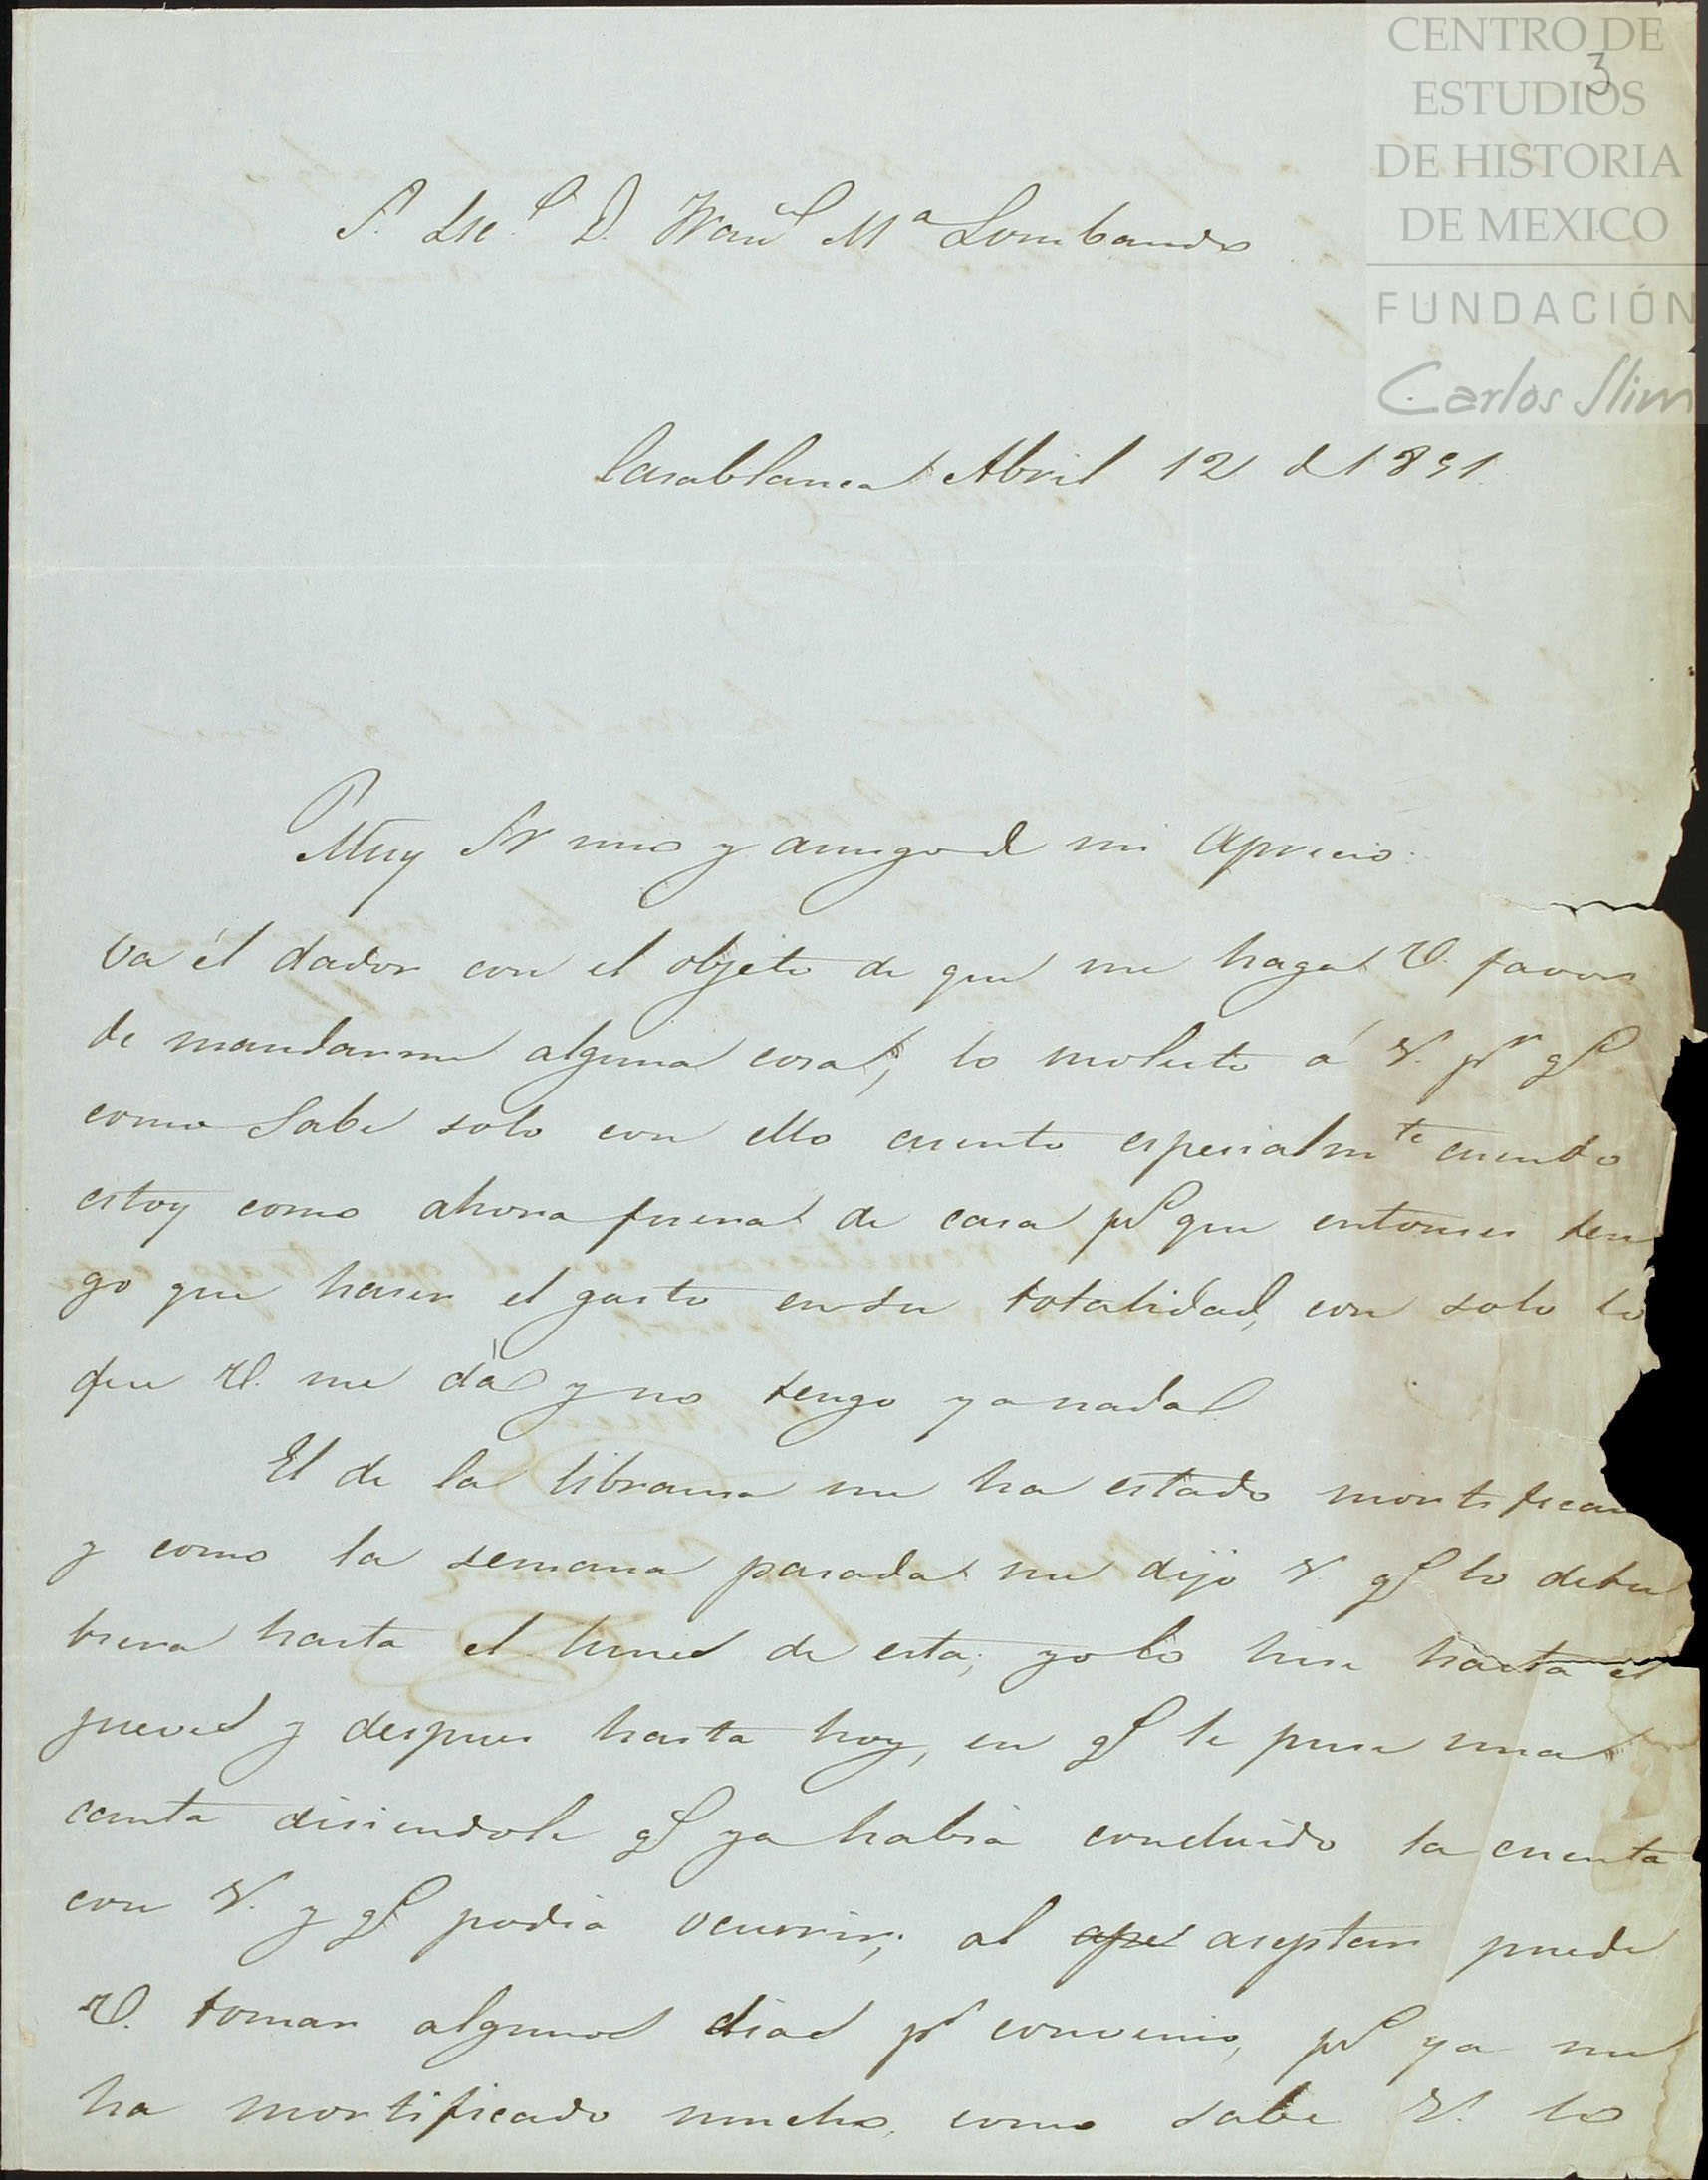 CENTRO DE
ESTUDIOS
DE HISTORIA
DE MEXICO
FUNDACIÓN
Carlos Slim
3
S. Lic.o D. Man.l M.a Lombardo
Casablanca Abril 12 de 1851.
Muy Sr mio y amigo de mi aprecio:
Va él dador con el objeto de que me haga V. favor
de mandarme alguna cosa, lo molesto á V. pr qe
como sabe solo con ello cuento especialmte cuando
estoy como ahora fuera de casa ps que entonces ten
go que haser el gasto en su totalidad, con solo lo
que V. me dá y no tengo ya nada.
El de la libransa me ha estado mortifican
y como la semana pasada me dijo V. qe lo detu
biera hasta el lunes de esta; yo lo hise hasta el
jueves y despues hasta hoy, en qe le puse una
carta disiendole qe ya habia concluido la cuenta
con V. y qe podia ocurrir; al ape aseptar puede
V. tomar algunos dias pr convenio, ps ya me
ha mortificado mucho, como sabe V. lo